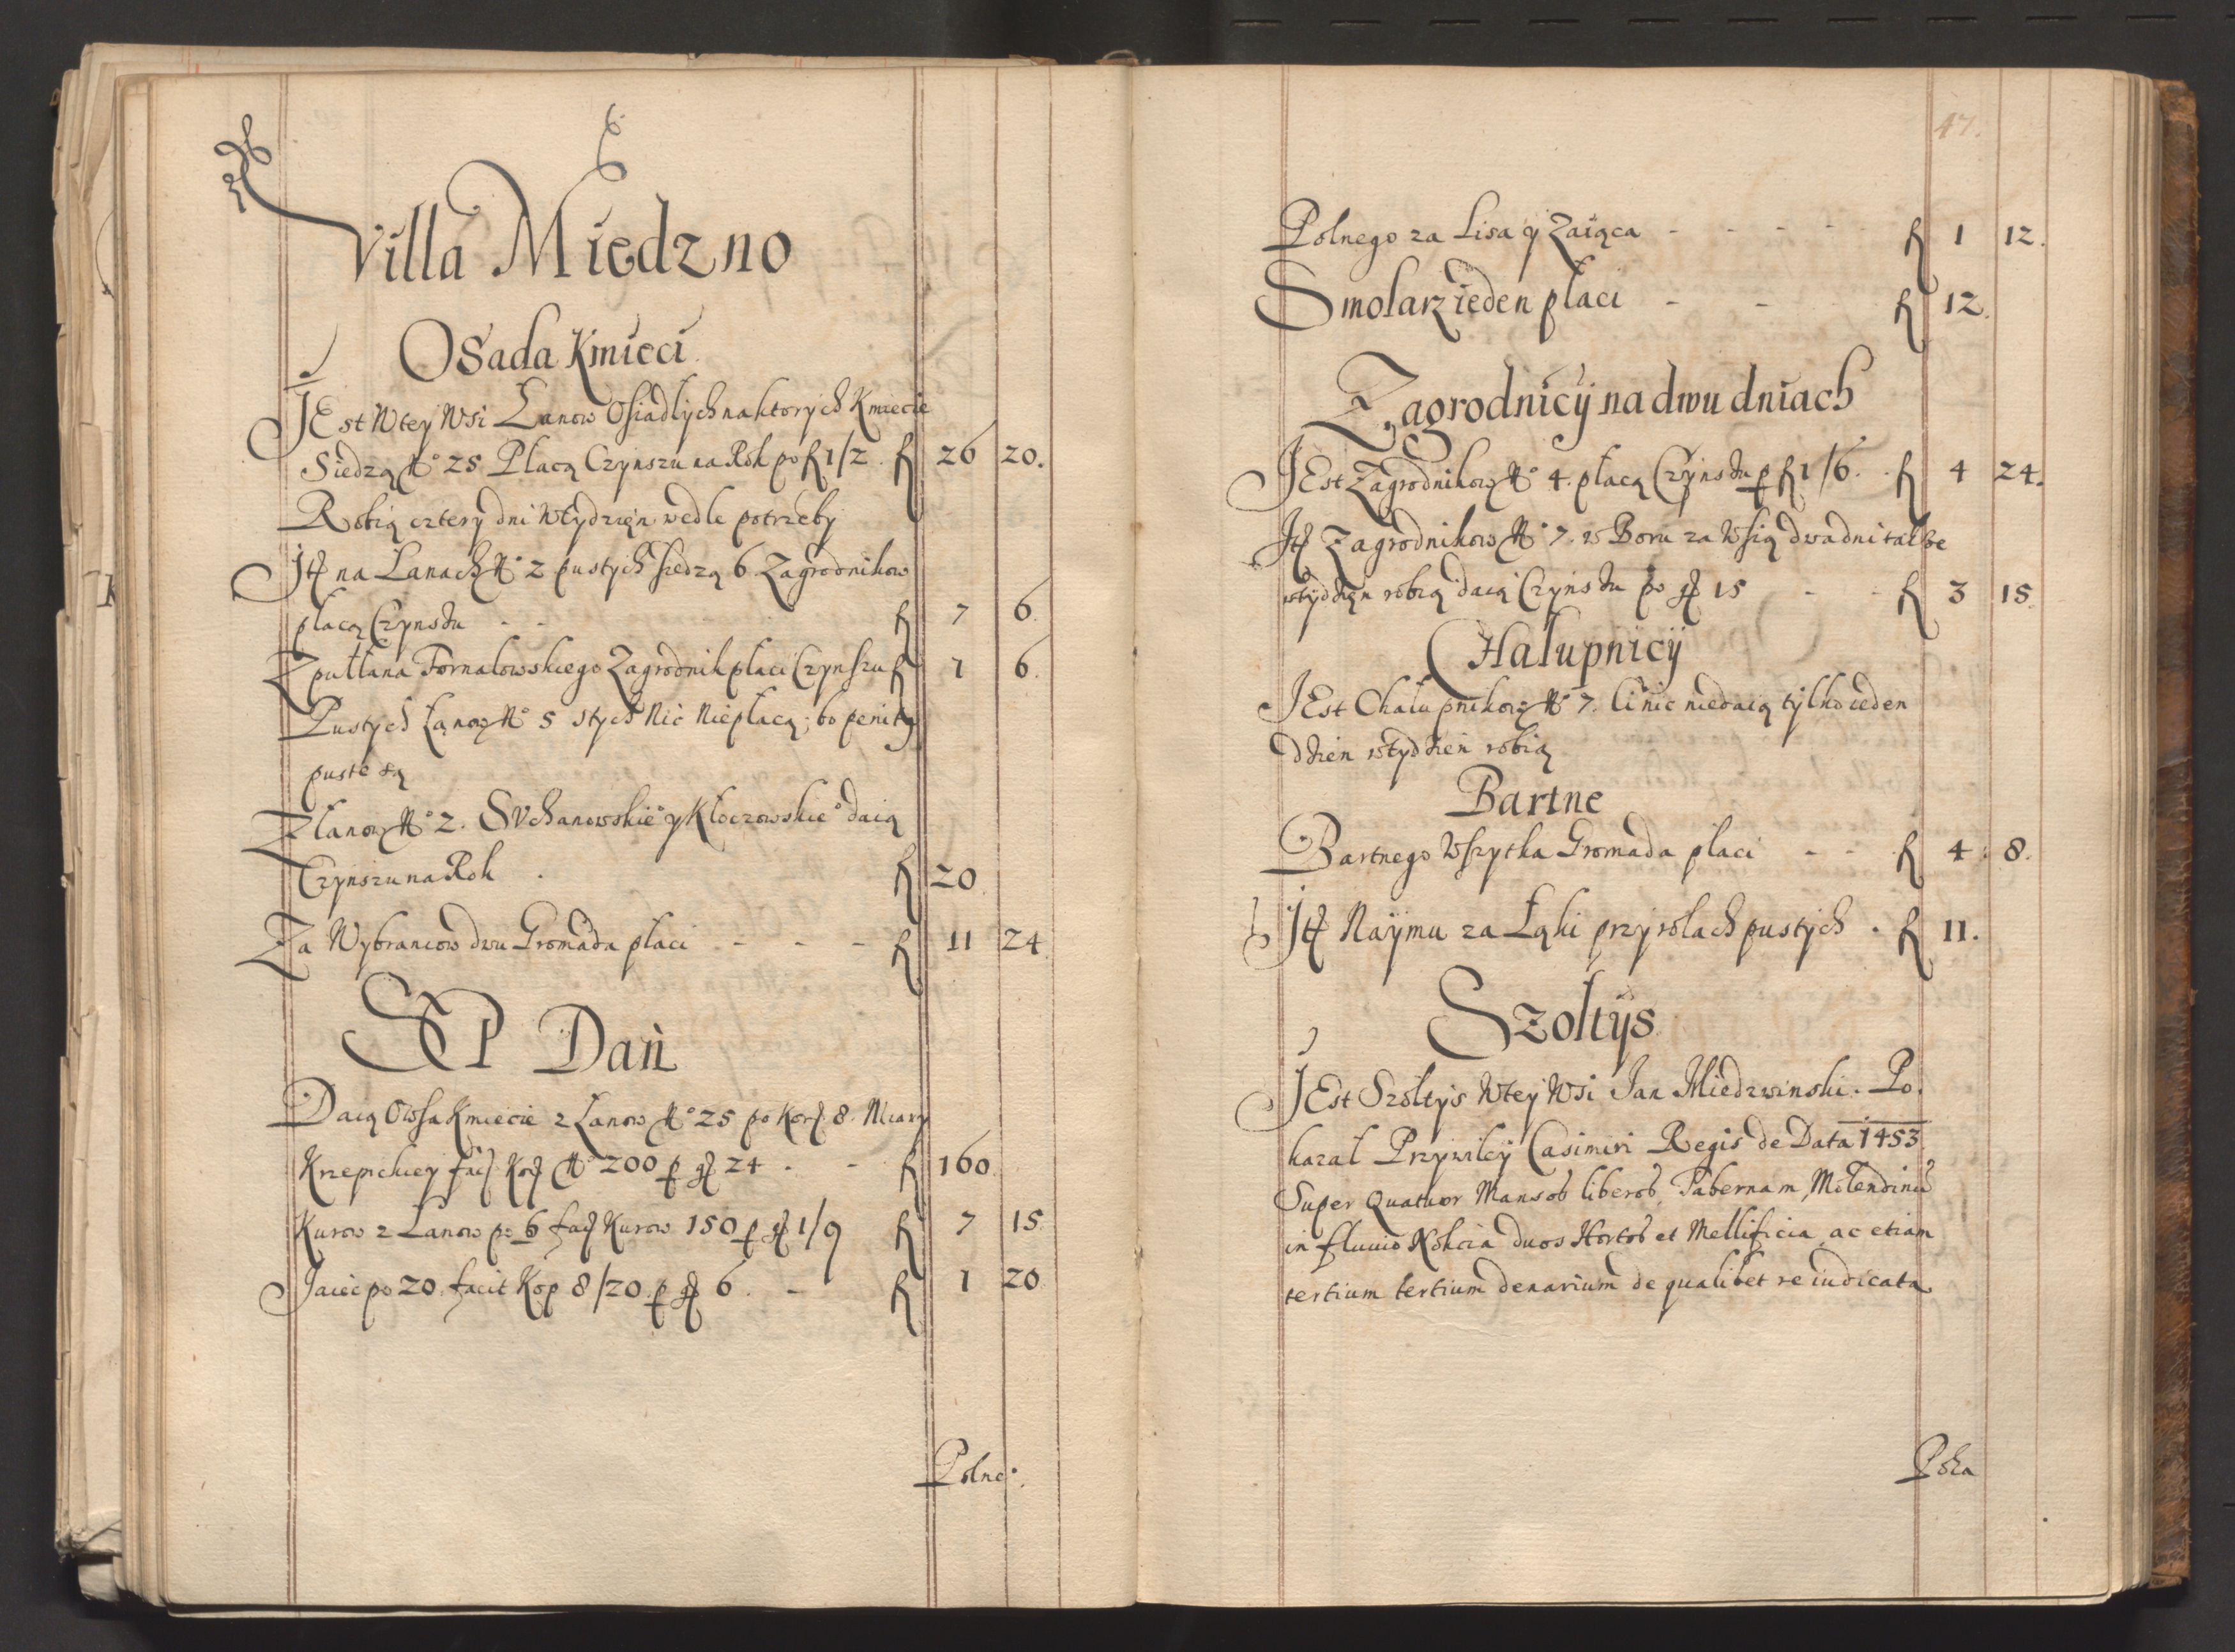 Villa Miedzno
Osada Kmieci.
JEst Wtey Wsi Łanow Osiadłych na ktorych Kmiecie
Siedzą No 25 Płacą Czynszu na Rok po fl 1/2. fl 26 20.
Robią cztery dni Wtydzięn wedle potrzeby
Jtt na Łanach No 2 pustych siedzą 6. Zagrodnikow
płacą Czynszu - - fl 7 6.
Zpułłana Fornalowskiego Zagrodnik płaci Czynszu fl 1 6.
Pustych Łanow No 5 stych Nic Niepłacą; bo penitg
puste są
Złanow No 2. SVchanowskieo y Kłoczowskieo daią
Czynszu na Rok . fl 20.
Za Wybrancow dwu Gromada płaci - - - fl 11 24.
SEP Dań
Daią Owsa Kmiecie z Łanow No 25 po Korc. 8. Miary
Krzepickiey facj Korc No 200 p gr 24 - - fl 160.
Kurow z Łanow po 6 facj Kurow 150 p gr 1/9 fl 7 15.
Jaiec po 20. facit Kop 8/20. p gr 6. - fl 1 20.
Polne:
47.
Polnego za Lisa y Zaiąca - - - - fl 1 12.
Smolarz ieden płaci - - fl 12.
Zagrodnicÿ na dwu dniach
JEst Zagrodnikow No 4. płacą Czynszu p fl 1/6. . fl 4 24.
Jtt Zagrodnikow No 7. w Boru za Wsią dwa dni także
wtydzięn robią daią Czynszu po gr 15 - - fl 3 15.
CHałupnicÿ
JEst Chałupnikow No 7. Ci nic niedaią tylko ieden
dzień wtydzień robią
Bartne
Bartnego Wszytka Gromada płaci - - fl 4. 8.
Jtt Naÿmu za Łąki przy rolach pustych . fl 11.
Szołtÿs
JEst Szołtys Wtey Wsi Jan Miedzwinski. Po.
kazał Przywiley Casimiri Regis de Data 1453
Super Quatuor Mansos liberos, Tabernam, Molendinū
in fluuio Kokcia duos Hortos et Mellificia ac etiam
tertium tertium denarium de qualibet re iudicata
Poka